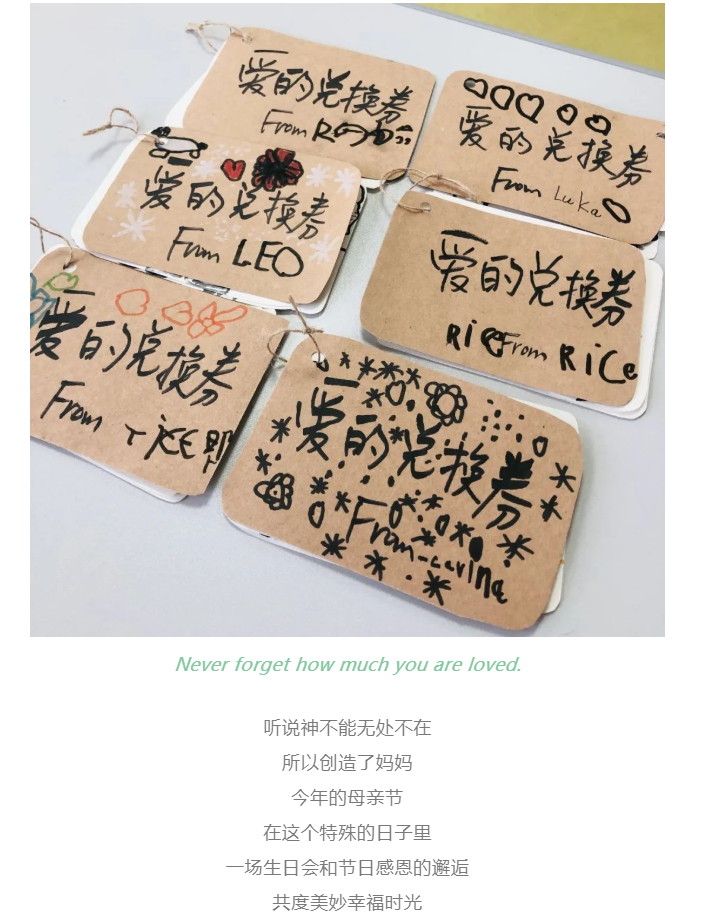 爱的兑换券
From
爱的兑换券
From Luka
爱的兑换券
From LEO
爱的兑换券
RiCe From RiCe
爱的兑换券
From
爱的兑换券
From Carina
Never forget how much you are loved.
听说神不能无处不在
所以创造了妈妈
今年的母亲节
在这个特殊的日子里
一场生日会和节日感恩的邂逅
共度美妙幸福时光